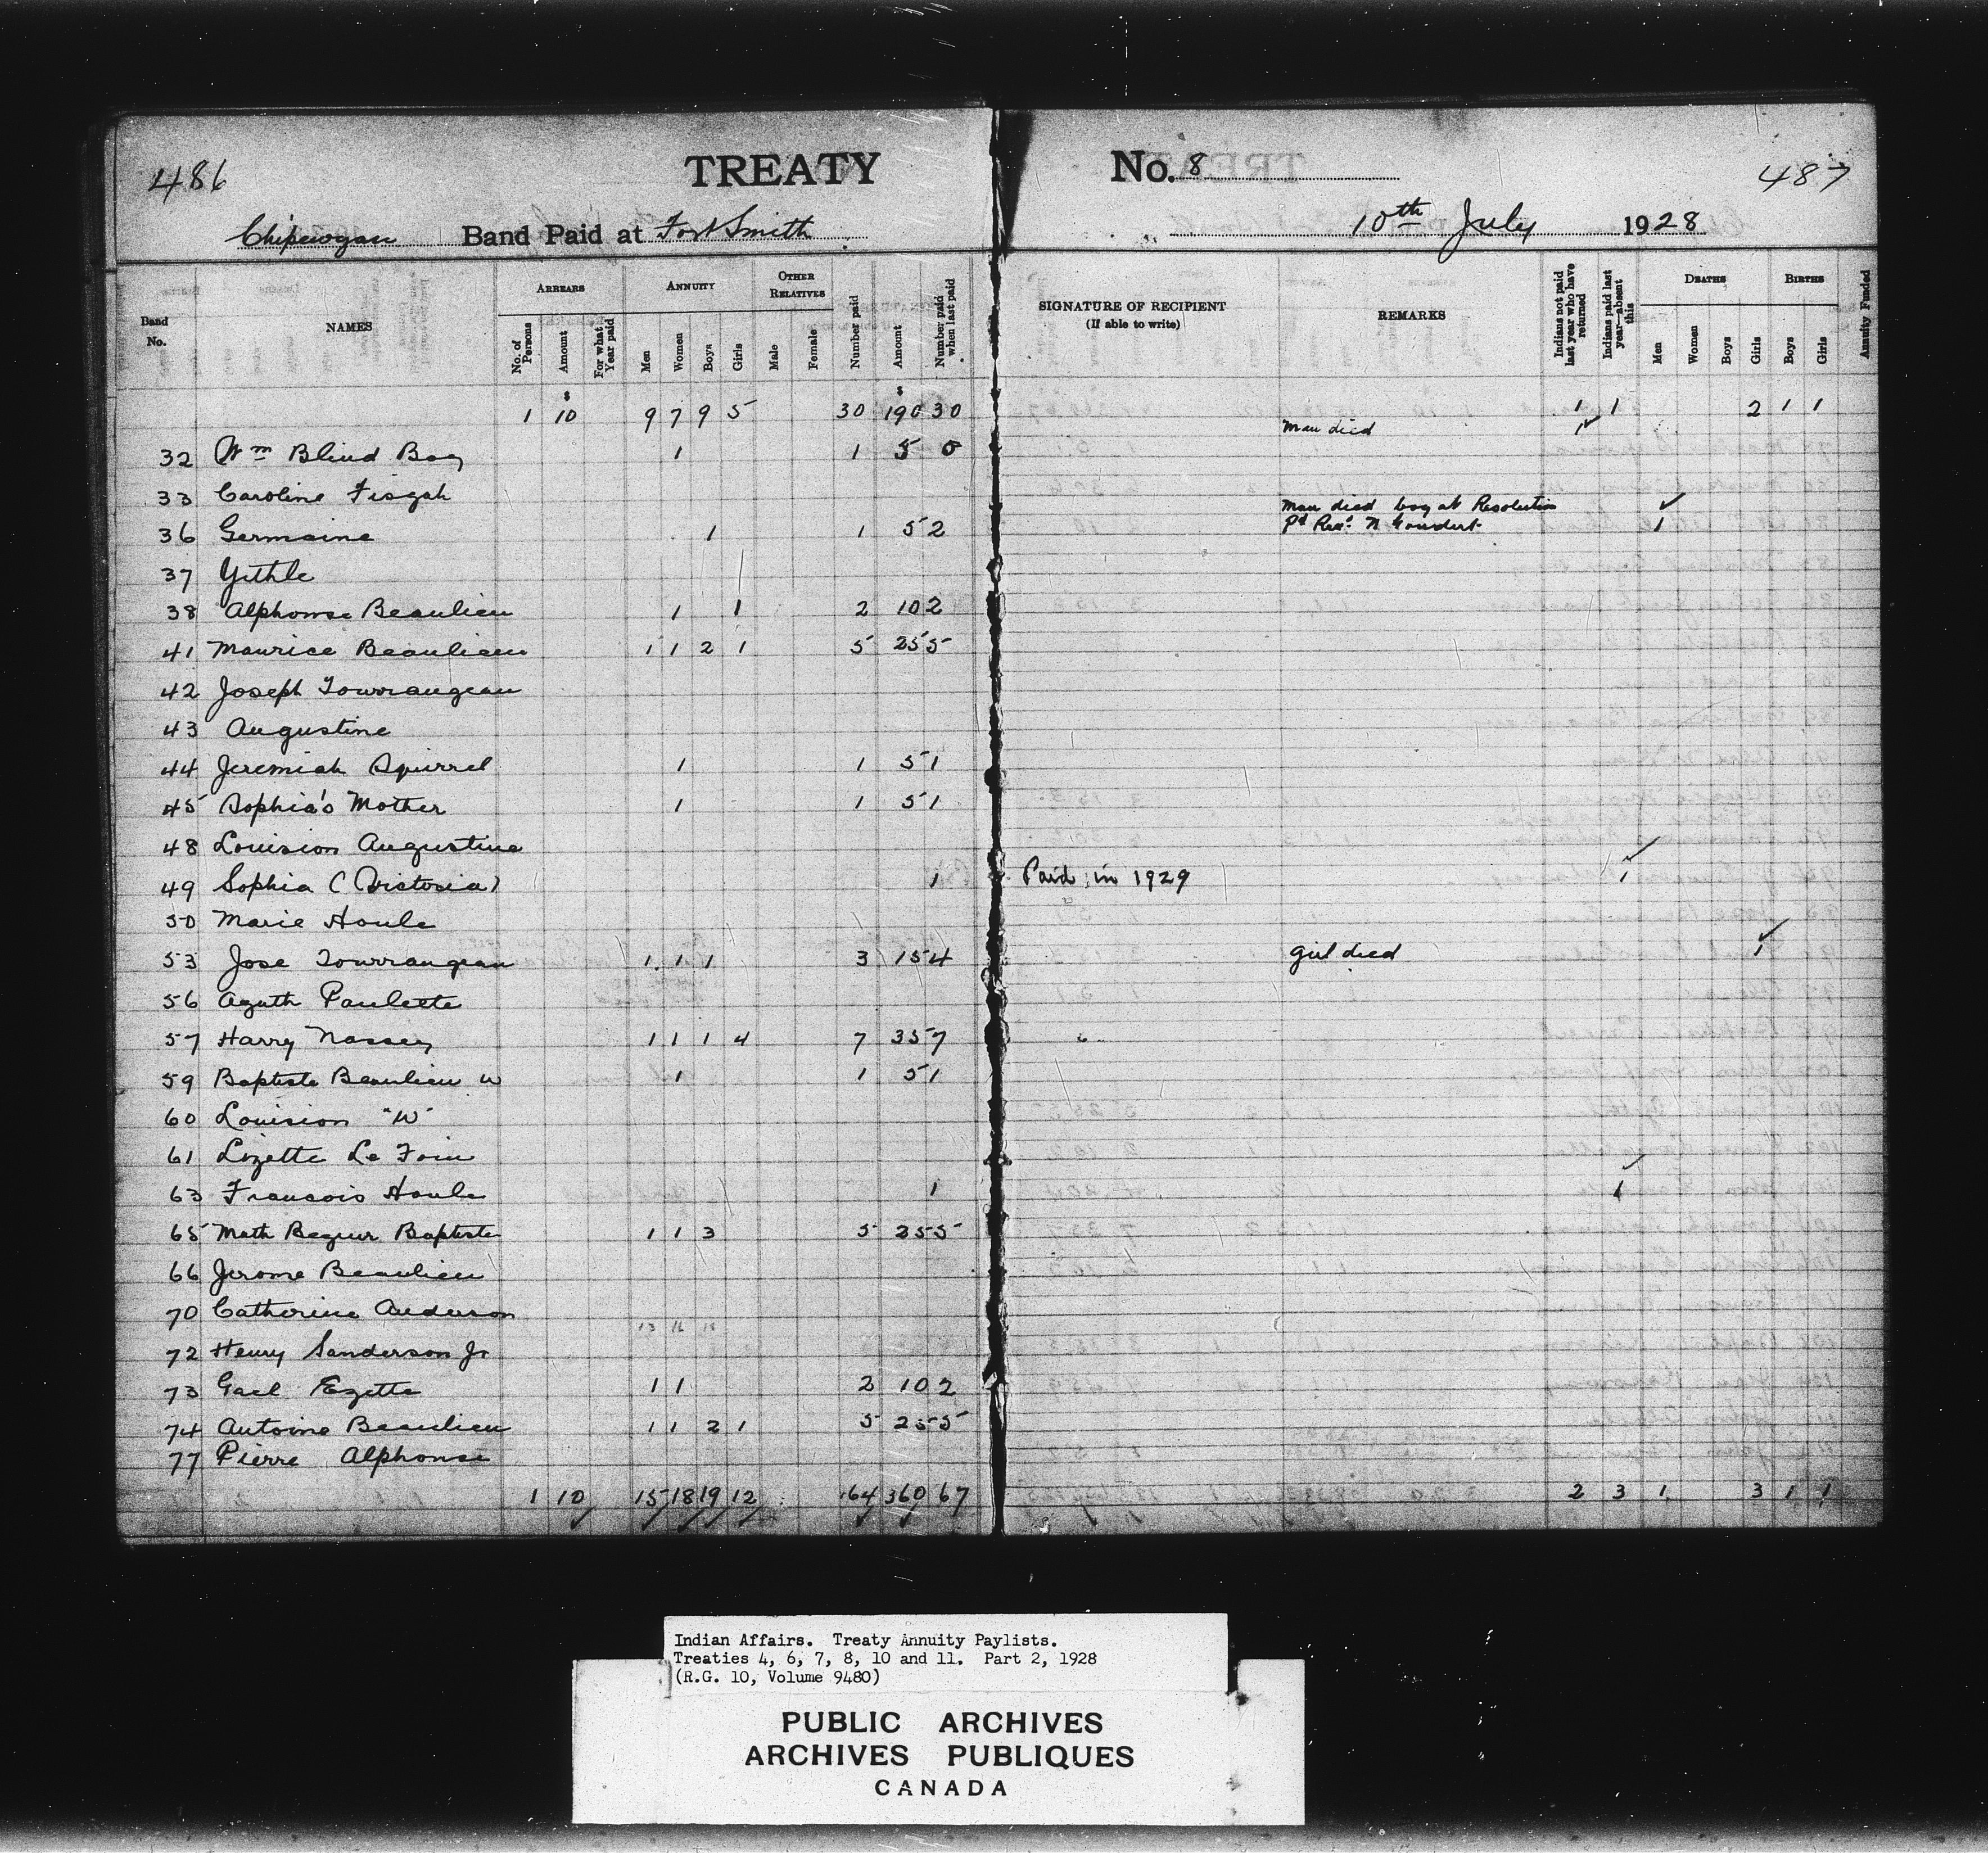 486 TREATY No. 8 487
Chipewyan Band Paid at Fort Smith 10th July 1928
Band No. NAMES ARREARS No. of Persons Amount For what Year paid ANNUITY Men Women Boys Girls OTHER RELATIVES Male Female Number paid Amount Number paid when last paid SIGNATURE OF RECIPIENT (If able to write) REMARKS Indians not paid last year who have returned Indians paid last year—absent this DEATHS Men Women Boys Girls BIRTHS Boys Girls Annuity Funded
$ $
1 10 9 7 9 5 30 190 30 1 1 2 1 1
32 Wm Blind Boy 1 1 5 0 Man died 1
33 Caroline Fisgah
36 Germaine 1 1 5 2 Man died boy at Resolution Pd Rect N Goudert 1
37 Yethle
38 Alphonse Beaulieu 1 1 2 10 2
41 Maurice Beaulieu 1 1 2 1 5 25 5
42 Joseph Tourrangeau
43 Augustine
44 Jeremiah Squirrel 1 1 5 1
45 Sophia's Mother 1 1 5 1
48 Louision Augustine
49 Sophia (Victoria) 1 Paid in 1929 1
50 Marie Houle
53 Jose Tourrangeau 1 1 1 3 15 4 girl died 1
56 Agath Paulette
57 Harry Nassey 1 1 1 4 7 35 7
59 Baptiste Beaulieu W 1 1 5 1
60 Louision "W"
61 Lizette Le Foin
63 Francois Houle 1 1
65 Math Baptiste 1 1 3 5 25 5
66 Jerome Beaulieu
70 Catherine Anderson
72 Henry Sanderson Jr
73 Gael Ezette 1 1 2 10 2
74 Antoine Beaulieu 1 1 2 1 5 25 5
77 Pierre Alphonse
1 10 15 18 19 12 64 360 67 2 3 1 3 1 1
Indian Affairs. Treaty Annuity Paylists.
Treaties 4, 6, 7, 8, 10 and 11. Part 2, 1928
(R.G. 10, Volume 9480)
PUBLIC ARCHIVES
ARCHIVES PUBLIQUES
CANADA